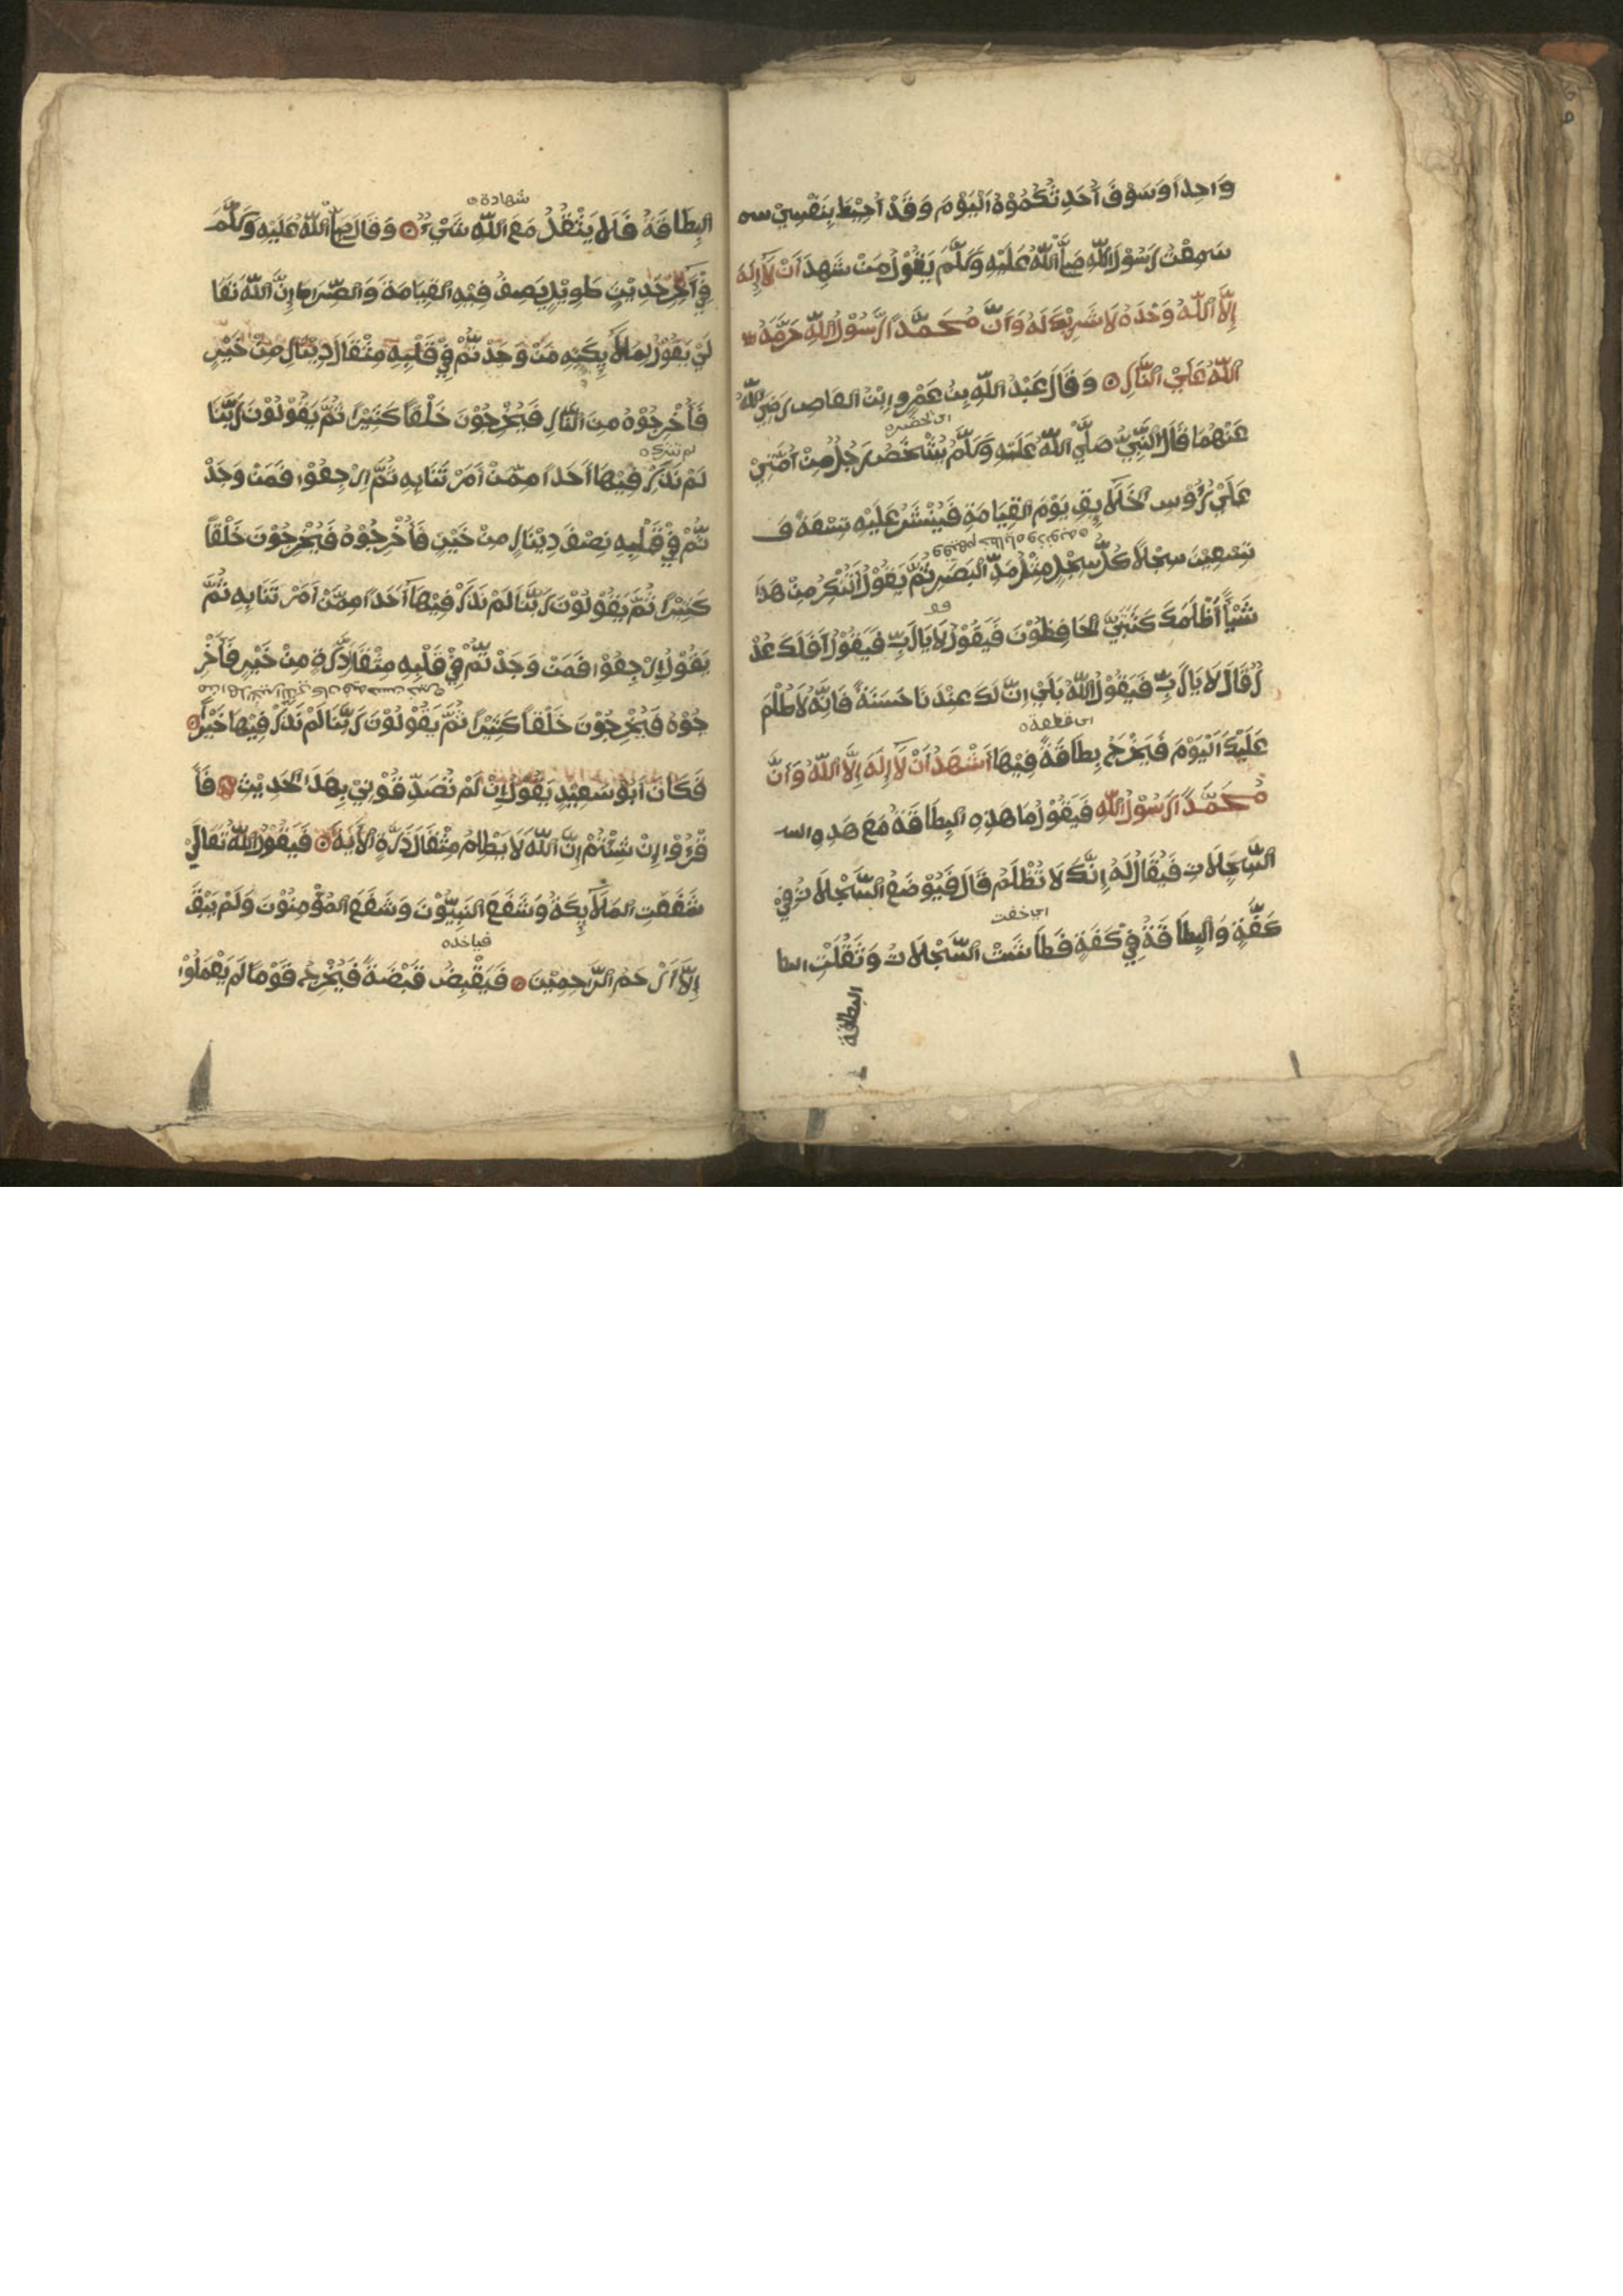 وَاحِدًا وَسَوْفَ أُحَدِّثُكُمُوْهُ اَلْيَوْمَ وَقَدْ أُحِيْطَ بِنَفْسِيْ سم
سَمِعْتُ رَسُوْلَ اللّٰهِ صَلَّى اللّٰهُ عَلَيْهِ وَسَلَّمَ يَقُوْلُ مَنْ شَهِدَ أَنْ لَآ إِلَهَ
إِلَّا اللّٰهُ وَحْدَهُ لَا شَرِيْكَ لَهُ وَأَنَّ مُحَمَّدًا رَّسُوْلُ اللّٰهِ حَرَّمَهُ
اللّٰهُ عَلَيْ النَّارِ ۞ وَقَالَ عَبْدُ اللّٰهِ بِنُ عَمْرٍو ابْنُ العَاصِ رَضِيَ اللّٰهُ
اى تحضيره
عَنْهُمَا قَالَ النَّبِيُّ صَلَّيْ اللّٰهُ عَلَيْهِ وَسَلَّمَ يُشْخَصُ رَجُلٌ مِنْ أُمَّتِيْ
عَلَيْ رُؤُوسِ الخَلَآيِقِ يَوْمَ القِيَامَةِ فَيُنْشَرُ عَلَيْهِ تِسْعَةٌ وَ
تِسْعِيْنَ سِجْلًا كُلُّ سِجْلٍ مِثْلُ مَدِّ البَصَرِ ثُمَّ يَقُوْلُ أَتُنْكِرُ مِنْ هَذَا
شَيْأً أَظْلَمَكَ كَتَبَتِيْ الحَافِظُوْنَ فَيَقُوْلُ لَا يَا رَبِّ فَيَقُوْلُ أَفَلَكَ عُذْ
رٌ قَالَ لَا يَا رَبِّ فَيَقُوْلُ اللّٰهُ بَلَيْ اِنَّ لَكَ عِنْدَنَا حَسَنَةً فَاِنَّهُ لَا ظُلْمَ
اى قطعة
عَلَيْكَ اَلْيَوْمَ فَيَخْرُجُ بِطَاقَةٌ فِيْهَا أَشْهَدُ أَنْ لَآ إِلَهَ إِلَّا اللّٰهُ وَأَنَّ
مُحَمَّدًا رَّسُوْلُ اللّٰهِ فَيَقُوْلُ مَا هَذِهِ البِطَاقَةُ مَعَ هَذِهِ السـ
السِّجِلَاتِ فَيُقَالُ لَهُ إِنَّكَ لَا تُظْلَمُ قَالَ فَيُوْضَعُ السِّجْلَاتُ فِيْ
اى خفت
كَفَّةٍ وَالبِطَاقَةُ فِيْ كَفَةٍ فَطَاشَتْ السِّجْلَاتُ وَثَقُلَتْ البطا
البطاقة
شهادة
البِطَاقَةُ فَلَا يَثْقُلُ مَعَ اللّٰهِ شَيْءٌ ۞ وَقَالَ صَلَّى اللّٰهُ عَلَيْهِ وَسَلَّمَ
فِيْ آخِرِ حَدِيْثٍ طَوِيْلٍ يَصِفُ فِيْهِ القِيَامَةَ وَالصِّرَاطَ إِنَّ اللّٰهَ تَعَا
لَيْ يَقُوْلُ لِمَلَآئِكَتِهِ مَنْ وَجَدْ تُّمْ فِيْ قَلْبِهِ مِثْقَالَ دِيْنَارٍ مِنْ خَيْرٍ
فَأَخْرِجُوْهُ مِنَ النَّارِ فَيُخْرِجُوْنَ خَلْقًا كَثِيْرًا ثُمَّ يَقُوْلُوْنَ رَبَّنَا
لم نترك
لَمْ نَذَرْ فِيْهَا أَحَدًا مِمَّنْ أَمَرْتَنَا بِهِ ثُمَّ اِرْجِعُوْا فَمَنْ وَجَدْ
تُّمْ فِيْ قَلْبِهِ نِصْفَ دِيْنَارٍ مِنْ خَيْرٍ فَأَخْرِجُوْهُ فَيُخْرِجُوْنَ خَلْقًا
كَثِيْرًا ثُمَّ يَقُوْلُوْنَ رَبَّنَا لَمْ نَذَرْ فِيْهَا أَحَدًا مِمَّنْ اَمَرْتَنَا بِهِ ثُمَّ
يَقُوْلُ اِرْجِعُوْا فَمَنْ وَجَدْ تُّمْ فِيْ قَلْبِهِ مِثْقَالَ ذَرَّةٍ مِنْ خَيْرٍ فَأَخْرِ
جُوْهُ فَيُخْرِجُوْنَ خَلْقًا كَثِيْرًا ثُمَّ يَقُوْلُوْنَ رَبَّنَا لَمْ نَذَرْ فِيْهَا خَيْرًا ۞
فَكَانَ اَبُوْ سَعِيْدٍ يَقُوْلُ اِنْ لَمْ تُصَدِّقُوْنِيْ بِهَذَا الحَدِيْثِ ۞ فَأَ
قْرَءُوْا إِنْ شِئْتُمْ إِنَّ اللّٰهَ لَا يَظْلِمُ مِثْقَالَ ذَرَّةٍ الأَيَةَ ۞ فَيَقُوْلُ اللّٰهُ تَعَالَيْ
شَفَعَتِ المَلَآيِكَةُ وَشَفَعَ النَبِيُّوْنَ وَشَفَعَ المُؤْمِنُوْنَ وَلَمْ يَبْقَ
فياخذه
إِلَّا اَرْحَمُ الرَّاحِمِيْنَ ۞ فَيَقْبِضُ قَبْضَةً فَيُخْرِجُ قَوْمًا لَمْ يَعْمَلُوْا